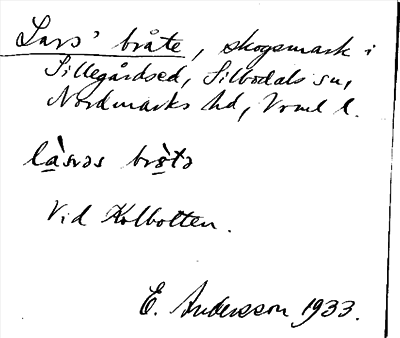 Lars' bråte, skogsmark i
Sillegårdsed, Silbodals sn,
Nordmarks hd, Vrml l.
là̱sɘs brò̱tɘ
Vid Kolbotten.
E. Andersson 1933.